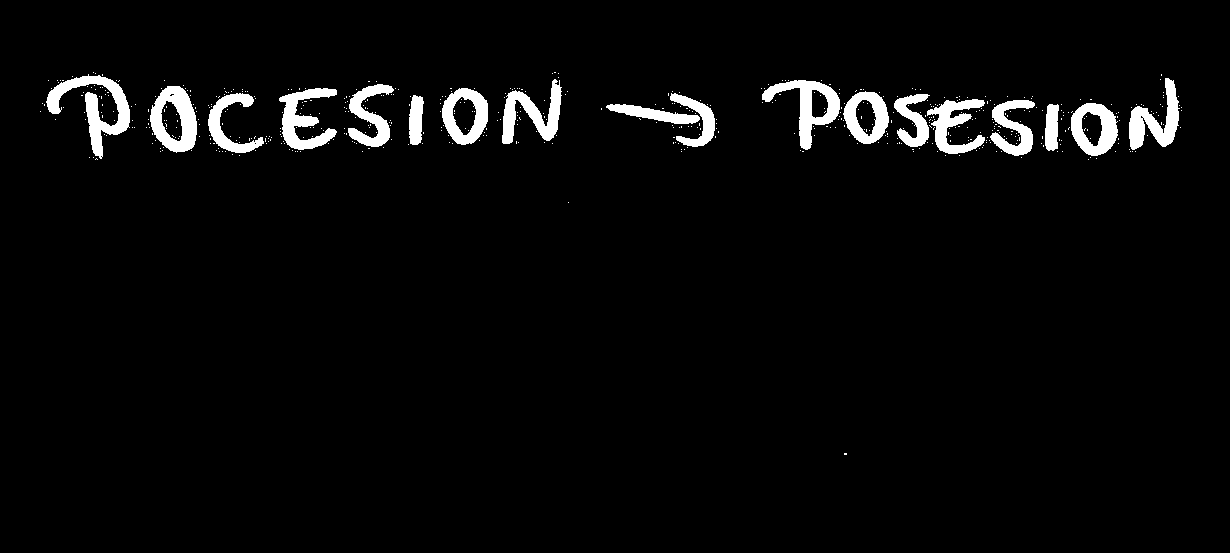 POCESION → POSESION